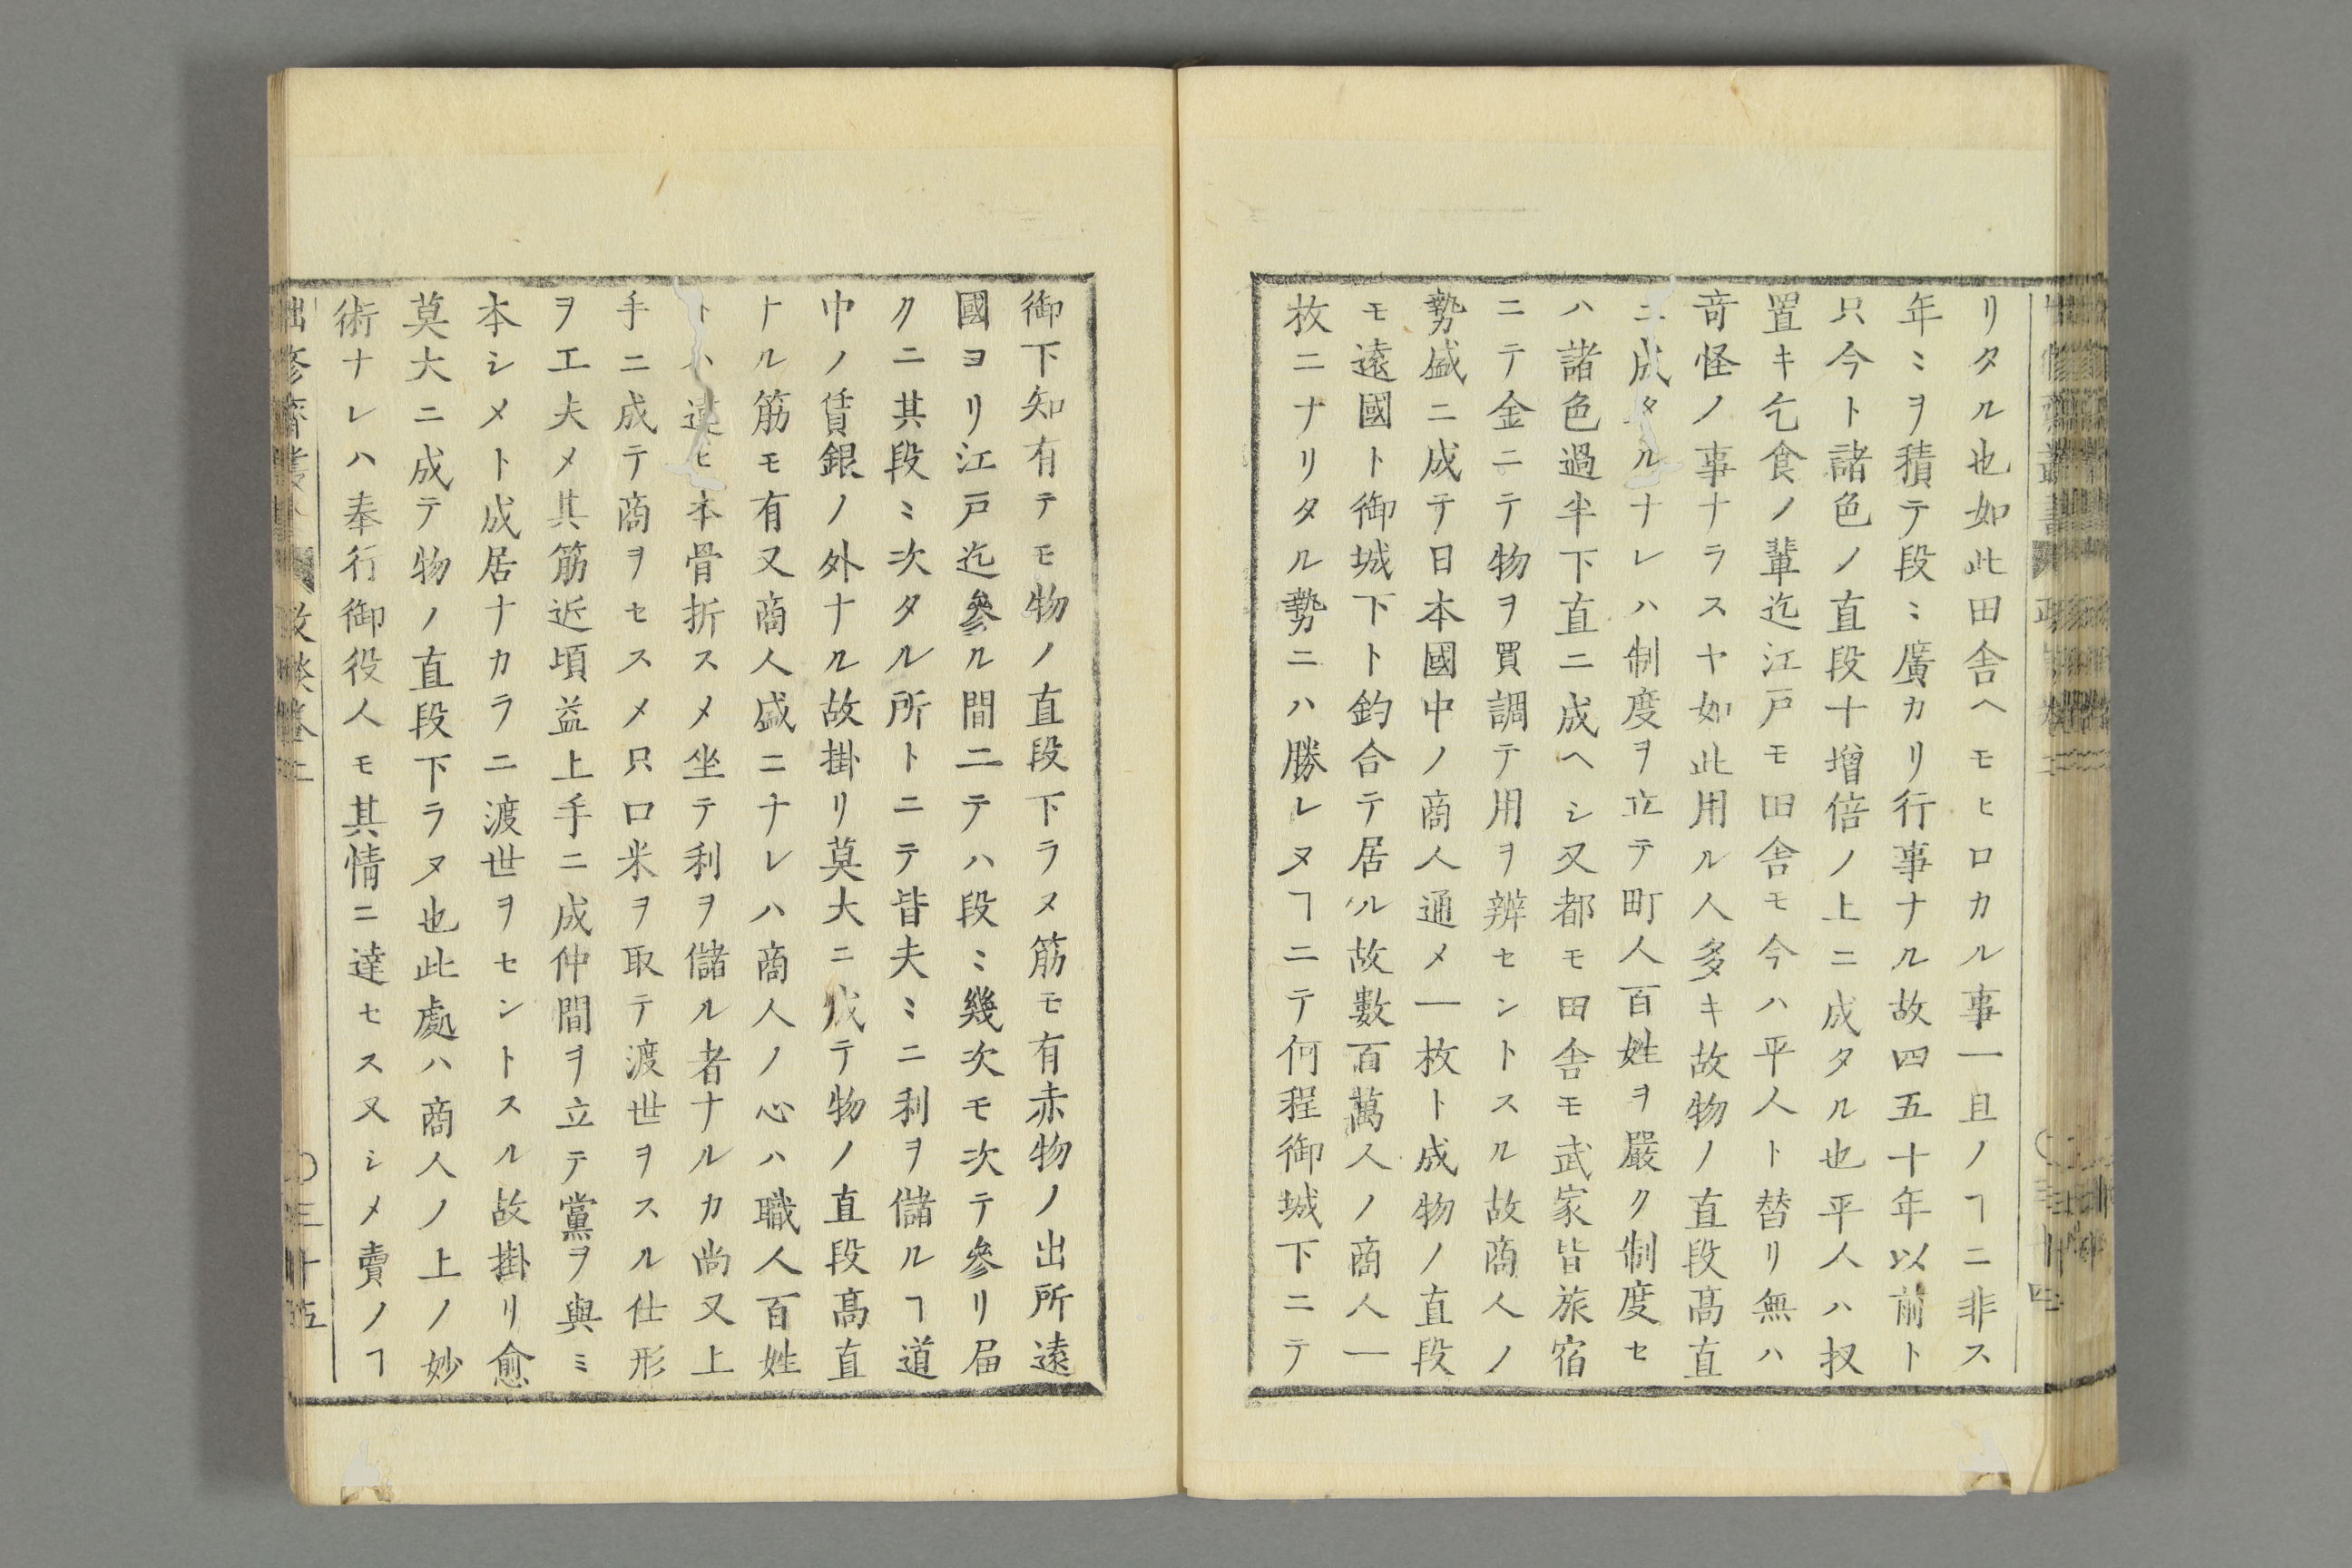 リタル也如此田舎ヘモヒロカル事一旦ノヿニ非ス
年ミヲ積テ段ミ廣カリ行事ナル故四五十年以前ト
只今ト諸色ノ直段十増倍ノ上ニ成タル也平人ハ扠
置キ乞食ノ輩迄江戸モ田舎モ今ハ平人ト替リ無ハ
竒怪ノ事ナラスヤ如此用ル人多キ故物ノ直段髙直
ニ成タルナレハ制度ヲ立テ町人百姓ヲ嚴ク制度セ
ハ諸色過半下直ニ成ヘシ又都モ田舎モ武家皆旅宿
ニテ金ニテ物ヲ買調テ用ヲ辨セントスル故商人ノ
勢盛ニ成テ日本國中ノ商人通メ一枚ト成物ノ直段
モ遠國ト御城下ト釣合テ居ル故數百萬人ノ商人一
枚ニナリタル勢ニハ勝レヌヿニテ何程御城下ニテ
三十四
御下知有テモ物ノ直段下ラヌ筋モ有赤物ノ出所遠
國ヨリ江戸迄參ル間ニテハ段ミ幾次モ次テ參リ届
クニ其段ミ次タル所トニテ皆夫ミニ利ヲ儲ルヿ道
中ノ賃銀ノ外ナル故掛リ莫大ニ成テ物ノ直段髙直
ナル筋モ有又商人盛ニナレハ商人ノ心ハ職人百姓
トハ違ヒ本骨折スメ坐テ利ヲ儲ル者ナルカ尚又上
手ニ成テ商ヲセスメ只口米ヲ取テ渡世ヲスル仕形
ヲ工夫メ其筋近頃益上手ニ成仲間ヲ立テ黨ヲ與ミ
本シメト成居ナカラニ渡世ヲセントスル故掛リ愈
莫大ニ成テ物ノ直段下ラヌ也此處ハ商人ノ上ノ妙
術ナレハ奉行御役人モ其情ニ達セス又シメ賣ノヿ
三十五